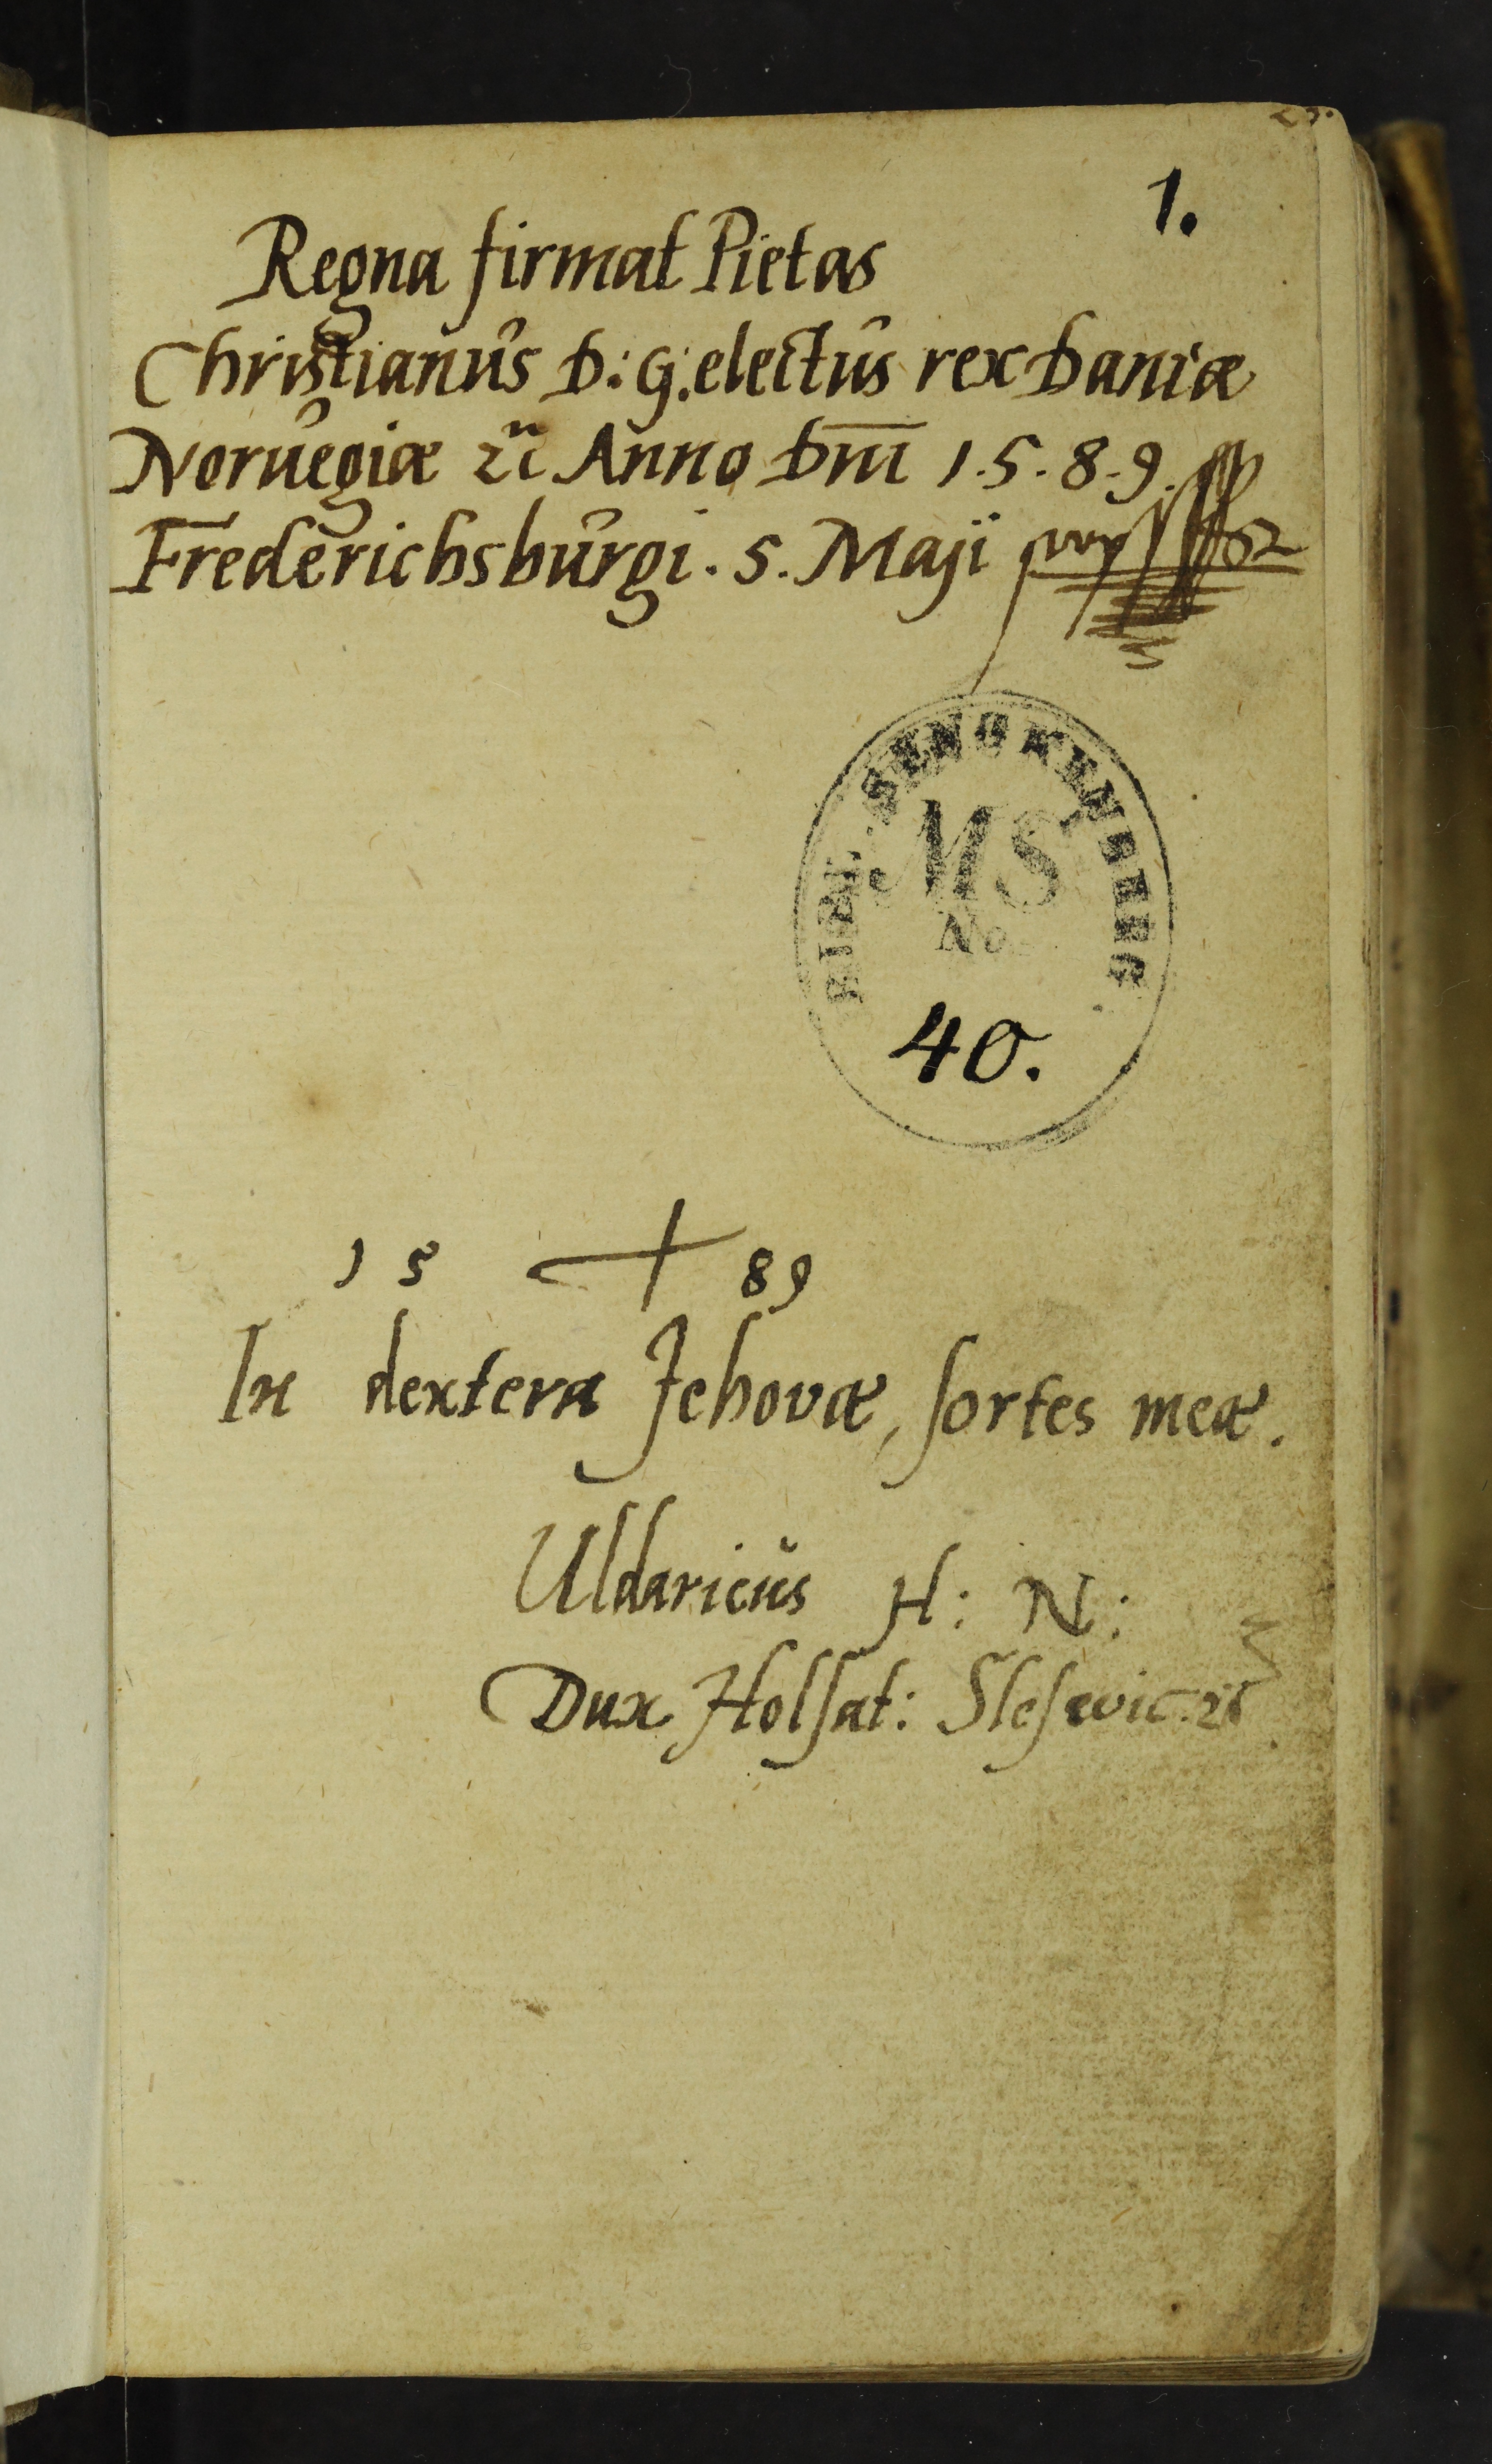 1.
Regna firmat Pietas
Christianus D: G: electus rex Daniæ
Noruegiæ ꝛc Anno Dm̄ 1.5.8.9.
Frederichsburgi. 5. Maji
BIBL. SENCKENBERG
MS
No
40.
15 89
In dextera Jehovæ, sortes meæ.
Uldaricus H: N:
Dux Holsat: Slesewic: ꝛc